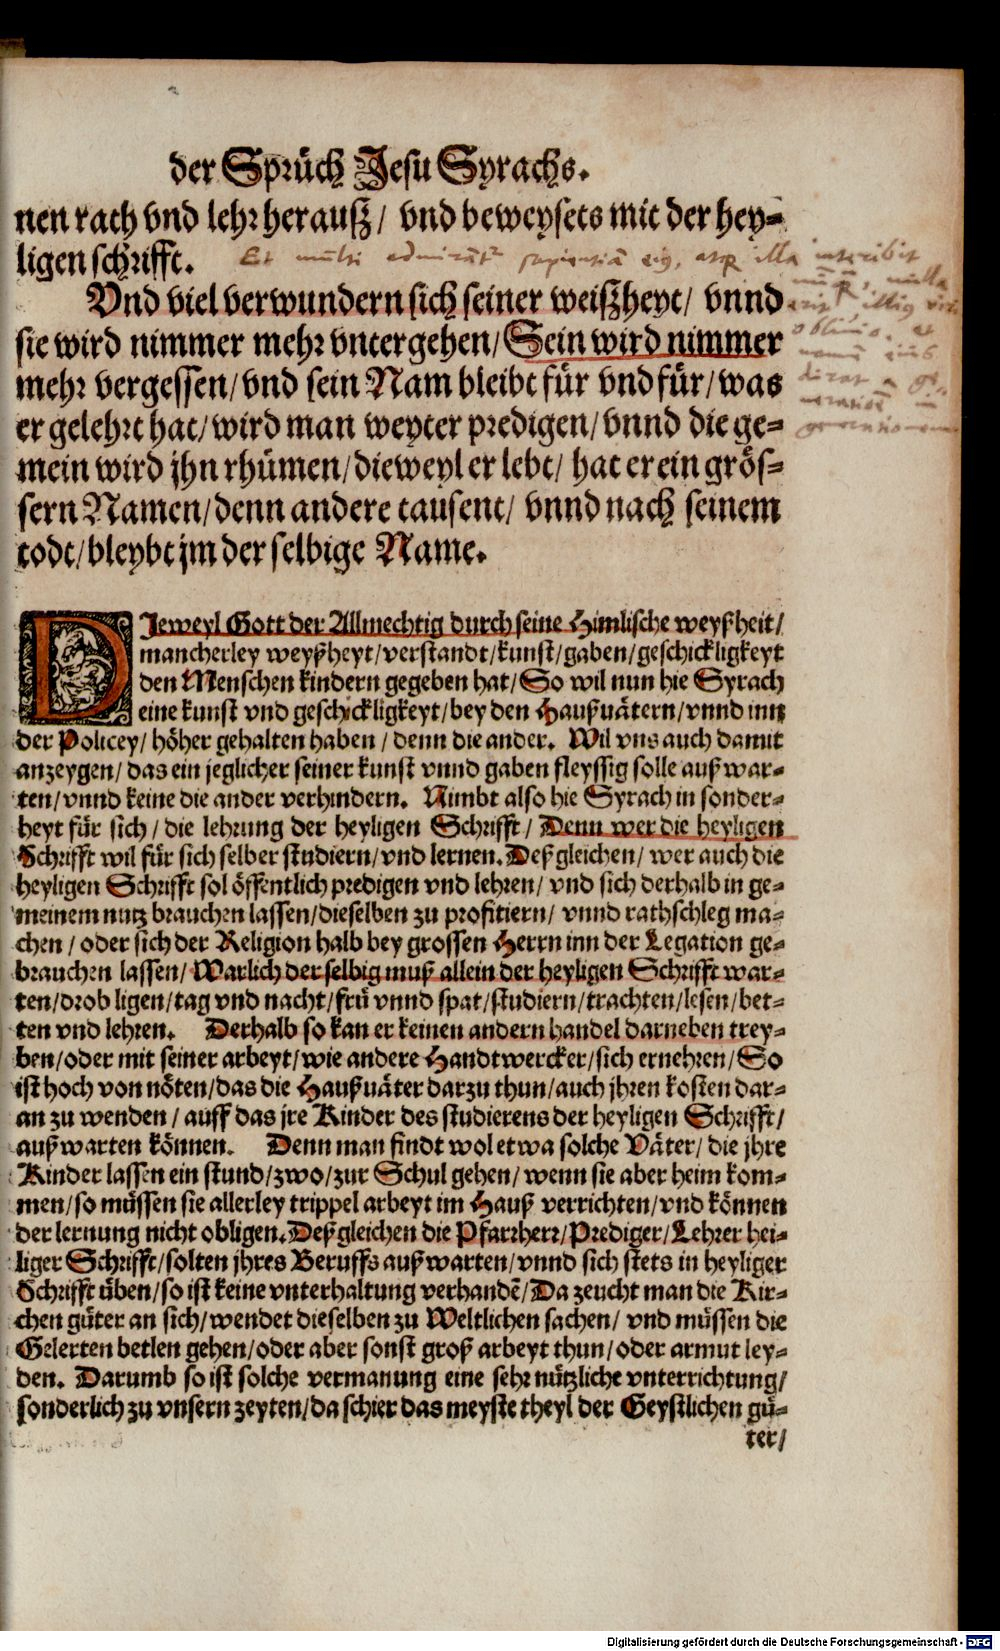 der Sprüch Jesu Syrachs.
nen rath vnd lehr herauß/ vnd beweysets mit der hey-
ligen schrifft.
Et multi admirāt sapientiā eiꝰ, atqꝫ illa interibit
Vnd viel verwundern sich seiner weißheyt/ vnnd
sie wird nimmer mehr vntergehen/ Sein wird nimmer
mehr vergessen/ vnd sein Nam bleibt für vnd für/ was
er gelehrt hat/ wird man weyter predigen/ vnnd die ge-
mein wird jhn rhümen/ dieweyl er lebt/ hat er ein grös-
sern Namen/ denn andere tausent/ vnnd nach seinem
todt/ bleybt jm der selbige Name.
nulla
oblivio. et
generationem
DIeweyl Gott der Allmechtig durch seine Himlische weyßheit/
mancherley weyßheyt/ verstandt/ kunst/ gaben/ geschickligkeyt
den Menschen kindern gegeben hat/ So wil nun hie Syrach
eine kunst vnd geschickligkeyt/ bey den Haußuätern/ vnnd inn
der Policey/ höher gehalten haben/ denn die ander. Wil vns auch damit
anzeygen/ das ein jeglicher seiner kunst vnnd gaben fleyssig solle auß war-
ten/ vnnd keine die ander verhindern. Nimbt also hie Syrach in sonder-
heyt für sich/ die lehrung der heyligen Schrifft/ Denn wer die heyligen
Schrifft wil für sich selber studiern/ vnd lernen. Deß gleichen/ wer auch die
heyligen Schrifft sol öffentlich predigen vnd lehren/ vnd sich derhalb in ge-
meinem nutz brauchen lassen/ dieselben zu profitiern/ vnnd rathschleg ma-
chen/ oder sich der Religion halb bey grossen Herrn inn der Legation ge-
brauchen lassen/ Warlich der selbig muß allein der heyligen Schrifft war-
ten/ drob ligen/ tag vnd nacht/ frü vnnd spat/ studiern/ trachten/ lesen/ bet-
ten vnd lehren. Derhalb so kan er keinen andern handel darneben trey-
ben/ oder mit seiner arbeyt/ wie andere Handtwercker/ sich ernehren/ So
ist hoch von nöten/ das die Haußuäter darzu thun/ auch jhren kosten dar-
an zu wenden/ auff das jre Kinder des studierens der heyligen Schrifft/
auß warten können. Denn man findt wol etwa solche Väter/ die jhre
Kinder lassen ein stund/ zwo/ zur Schul gehen/ wenn sie aber heim kom-
men/ so müssen sie allerley trippel arbeyt im Hauß verrichten/ vnd können
der lernung nicht obligen. Deß gleichen die Pfarrherr/ Prediger/ Lehrer hei-
liger Schrifft/ solten jhres Beruffs auß warten/ vnnd sich stets in heyliger
Schrifft üben/ so ist keine vnterhaltung verhandē/ Da zeucht man die Kir-
chen güter an sich/ wendet dieselben zu Weltlichen sachen/ vnd müssen die
Gelerten betlen gehen/ oder aber sonst groß arbeyt thun/ oder armut ley-
den. Darumb so ist solche vermanung eine sehr nützliche vnterrichtung/
sonderlich zu vnsern zeyten/ da schier das meyste theyl der Geystlichen gü-
ter/
Digitalisierung gefördert durch die Deutsche Forschungsgemeinschaft - DFG